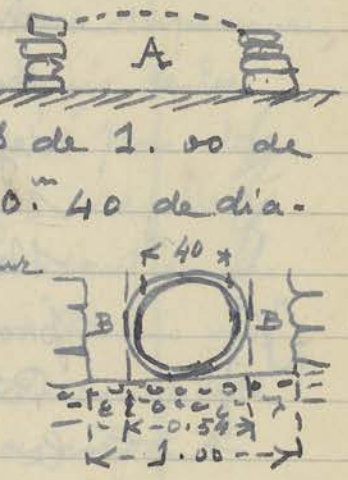 A
de 1.00 de
0.m 40 de dia-
40
B B
0.54
1.00